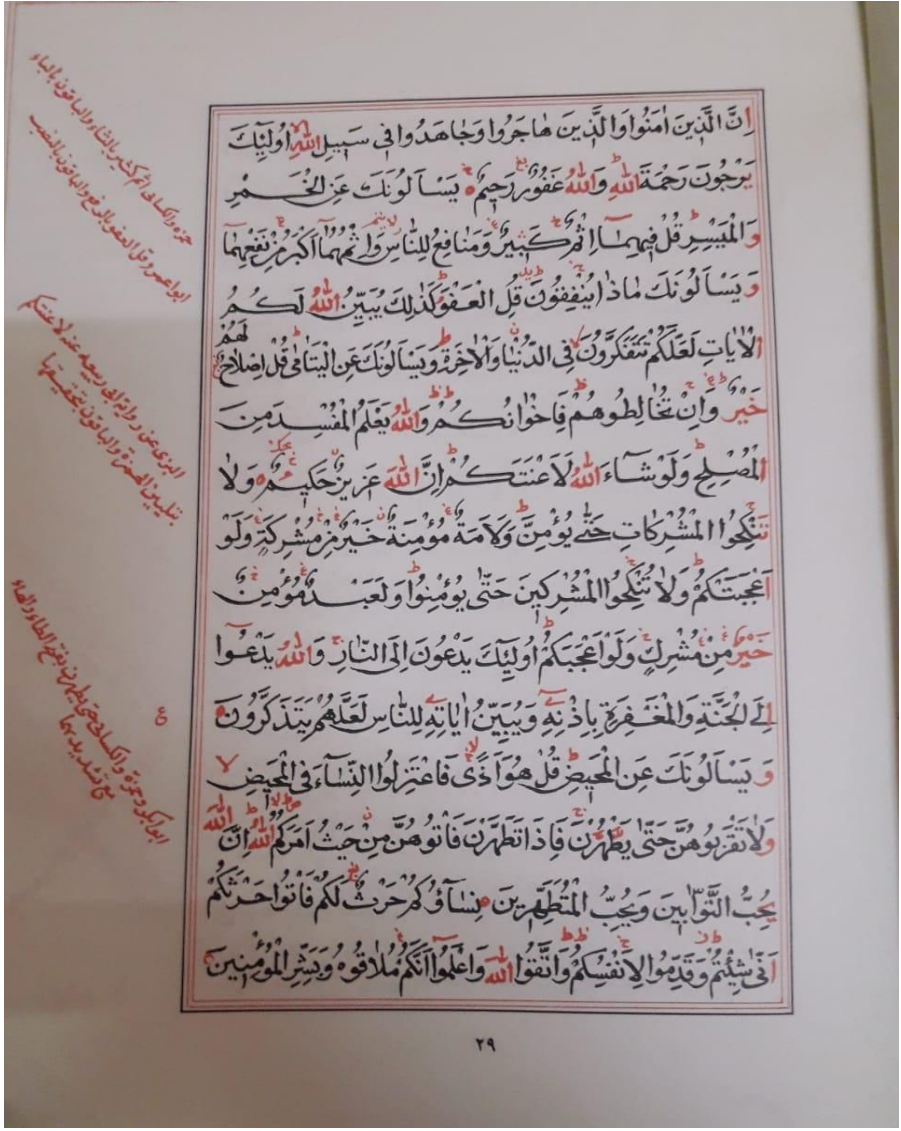 اِنَّ الَّذينَ اٰمَنُوا وَالَّذينَ هَاجَرُوا وَجَاهَدُوا فى سَبيلِ اللّٰهِ اُولٰٓئِكَ
يَرْجُونَ رَحْمَةَ اللّٰهِ وَاللّٰهُ غَفُورٌ رَحيمٌ يَسْاَلُونَكَ عَنِ الْخَمْرِ
وَالْمَيْسِرِ قُلْ فيهِمَا اِثْمٌ كَبيرٌ وَمَنَافِعُ لِلنَّاسِ وَاِثْمُهُمَا اَكْبَرُ مِنْ نَفْعِهِمَا
وَيَسْاَلُونَكَ مَاذَا يُنْفِقُونَ قُلِ الْعَفْوَ كَذٰلِكَ يُبَيِّنُ اللّٰهُ لَكُمُ
الْاٰيَاتِ لَعَلَّكُمْ تَتَفَكَّرُونَ فِى الدُّنْيَا وَالْاٰخِرَةِ وَيَسْاَلُونَكَ عَنِ الْيَتَامٰى قُلْ اِصْلَاحٌ لَهُمْ
خَيْرٌ وَاِنْ تُخَالِطُوهُمْ فَاِخْوَانُكُمْ وَاللّٰهُ يَعْلَمُ الْمُفْسِدَ مِنَ
الْمُصْلِحِ وَلَوْ شَاءَ اللّٰهُ لَاَعْنَتَكُمْ اِنَّ اللّٰهَ عَزيزٌ حَكيمٌ وَلَا
تَنْكِحُوا الْمُشْرِكَاتِ حَتّٰى يُؤْمِنَّ وَلَاَمَةٌ مُؤْمِنَةٌ خَيْرٌ مِنْ مُشْرِكَةٍ وَلَوْ
اَعْجَبَتْكُمْ وَلَا تُنْكِحُوا الْمُشْرِكينَ حَتّٰى يُؤْمِنُوا وَلَعَبْدٌ مُؤْمِنٌ
خَيْرٌ مِنْ مُشْرِكٍ وَلَوْ اَعْجَبَكُمْ اُولٰٓئِكَ يَدْعُونَ اِلَى النَّارِ وَاللّٰهُ يَدْعُوا
اِلَى الْجَنَّةِ وَالْمَغْفِرَةِ بِاِذْنِهٖ وَيُبَيِّنُ اٰيَاتِهٖ لِلنَّاسِ لَعَلَّهُمْ يَتَذَكَّرُونَ
وَيَسْاَلُونَكَ عَنِ الْمَحيضِ قُلْ هُوَ اَذًى فَاعْتَزِلُوا النِّسَاءَ فِى الْمَحيضِ
وَلَا تَقْرَبُوهُنَّ حَتّٰى يَطْهُرْنَ فَاِذَا تَطَهَّرْنَ فَاْتُوهُنَّ مِنْ حَيْثُ اَمَرَكُمُ اللّٰهُ اِنَّ اللّٰهَ
يُحِبُّ التَّوَّابينَ وَيُحِبُّ الْمُتَطَهِّرينَ نِسَاؤُكُمْ حَرْثٌ لَكُمْ فَاْتُوا حَرْثَكُمْ
اَنّٰى شِئْتُمْ وَقَدِّمُوا لِاَنْفُسِكُمْ وَاتَّقُوا اللّٰهَ وَاعْلَمُوا اَنَّكُمْ مُلَاقُوهُ وَبَشِّرِ الْمُؤْمِنينَ
حمزه والكسائى اثم كثير بالثاء والباقون بالباء
ابو اعمرو قل العفو بالرفع والباقون بالنصب
البزى عن رواية ابى ربيعه عنه لاعنتكم
بتليين الهمزة والباقون بتحقيقها
ابو بكر وحمزة والكسائى حتى يطهرن بفتح الطاء والهاء
مع تشديدهما
ع
٢٩